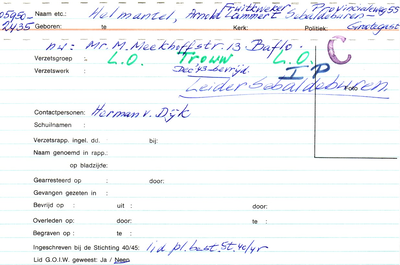 Fruitkweker Provincialeweg 55
05950- Naam etc.: Hulmantel, Arnold Lammert Sebaldeburen-
2435 Geboren: te Kerk: Politiek: Grootegast
nw: Mr. M. Meekhoffstr. 13 Baflo. C
Verzetsgroep : L.O. Trouw L.O.
Verzetswerk : Dec '43 bevrijd. I P
Leider Sebaldeburen.
Contactpersonen: Herman v. Dijk
Schuilnaam :
Verzetsrapp. ingel. dd.: bij:
Naam genoemd in rapp.:
op bladzijde:
Gearresteerd op : door:
Gevangen gezeten in :
Bevrijd op : uit : door:
Overleden op: door: te :
Begraven op : te :
Ingeschreven bij de Stichting 40/45: lid pl. best. St. 40/45
Lid G.O.I.W. geweest: Ja / Neen